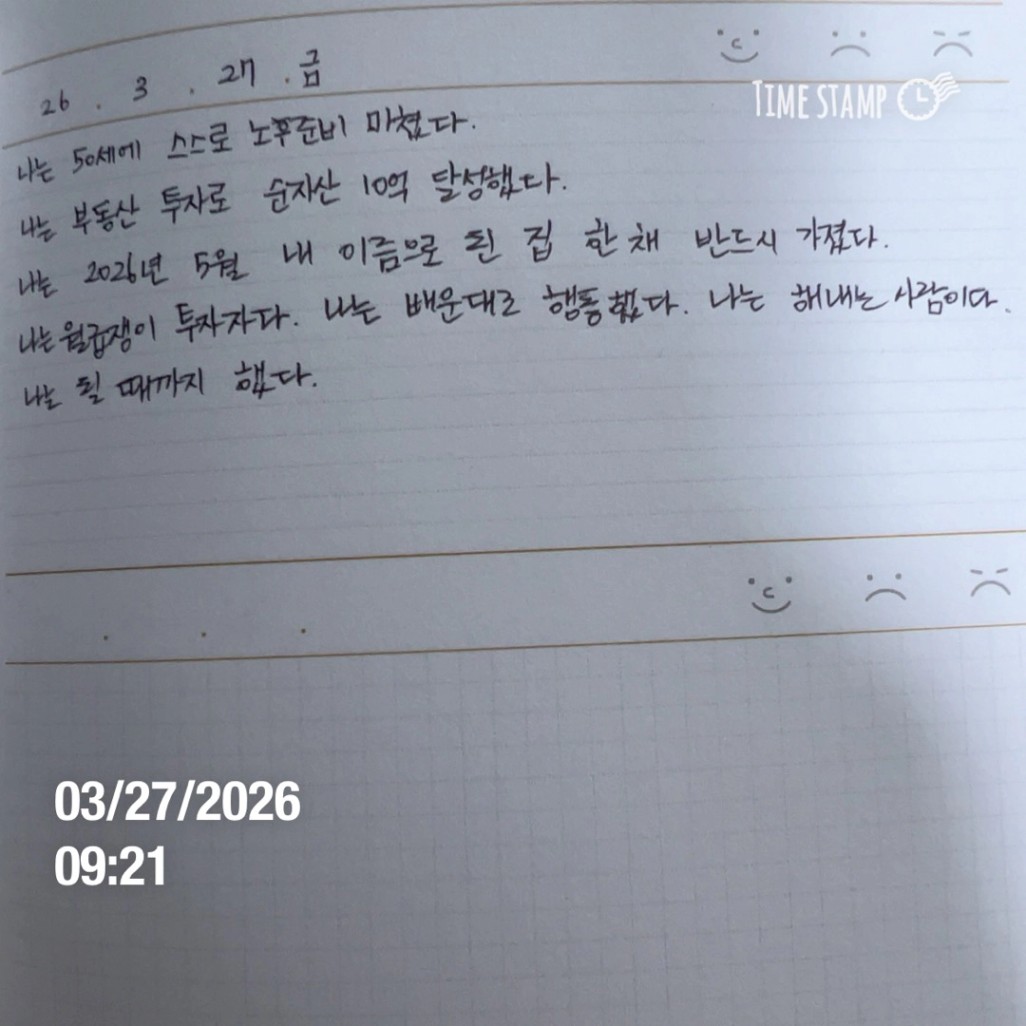 26 . 3 . 27 . 금
TIME STAMP
나는 50세에 스스로 노후준비 마쳤다.
나는 부동산 투자로 순자산 10억 달성했다.
나는 2026년 5월 내 이름으로 된 집 한 채 반드시 가졌다.
나는 월급쟁이 투자자다. 나는 배운대로 행동했다. 나는 해내는 사람이다.
나는 될 때까지 했다.
03/27/2026
09:21